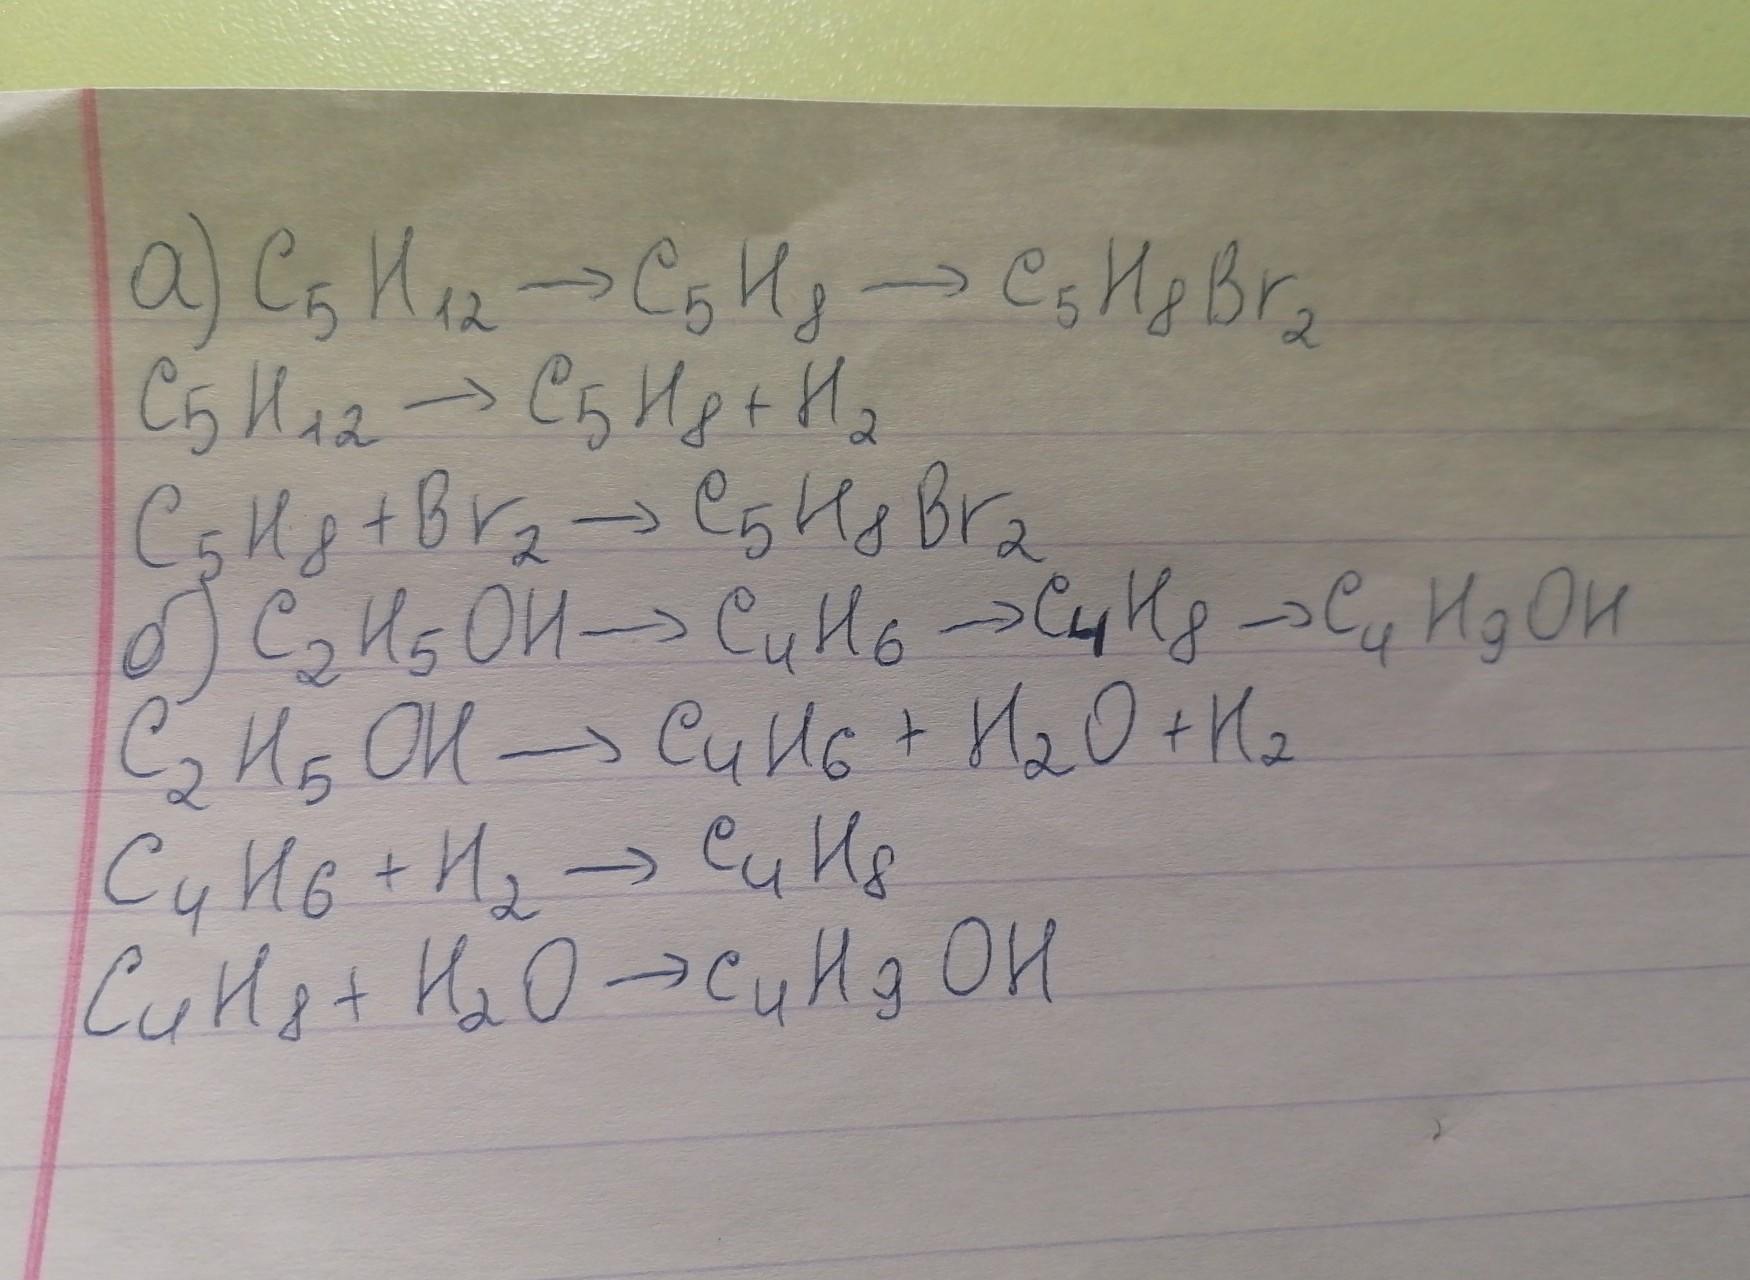 а) C₅H₁₂ → C₅H₈ → C₅H₈Br₂
C₅H₁₂ → C₅H₈ + H₂
C₅H₈ + Br₂ → C₅H₈Br₂
б) C₂H₅OH → C₄H₆ → C₄H₈ → C₄H₉OH
C₂H₅OH → C₄H₆ + H₂O + H₂
C₄H₆ + H₂ → C₄H₈
C₄H₈ + H₂O → C₄H₉OH